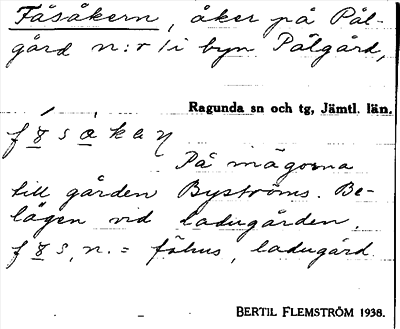 Fäsåkern, åker på Pål-
gård n:r 1 i byn Pålgård,
Ragunda sn och tg, Jämtl. län.
På mägorna
till gården Byströms. Be-
lägen vid ladugården.
n. = fähus, ladugård.
BERTIL FLEMSTRÖM 1938.